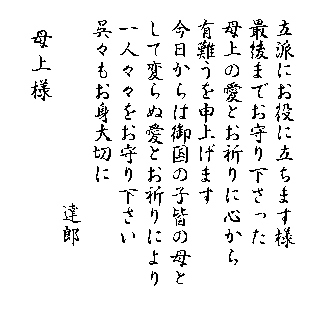 立派にお役に立ちます様
最後までお守り下さった
母上の愛とお祈りに心から
有難うを申上げます
今日からは御国の子皆の母と
して変らぬ愛とお祈りにより
一人々々をお守り下さい
呉々もお身大切に
達郎
母上様